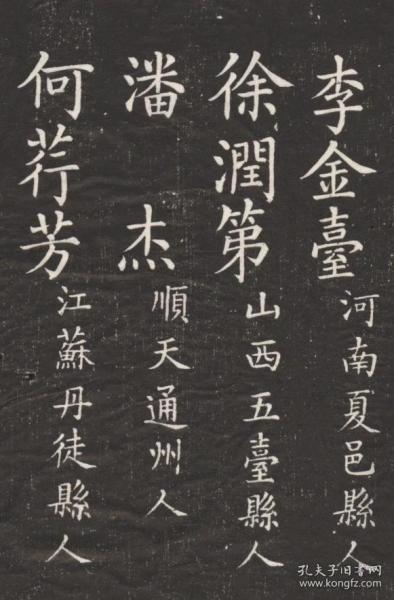 李金臺河南夏邑縣人
徐潤第山西五臺縣人
潘杰順天通州人
何荇芳江蘇丹徒縣人
孔夫子旧书网
www.kongfz.com